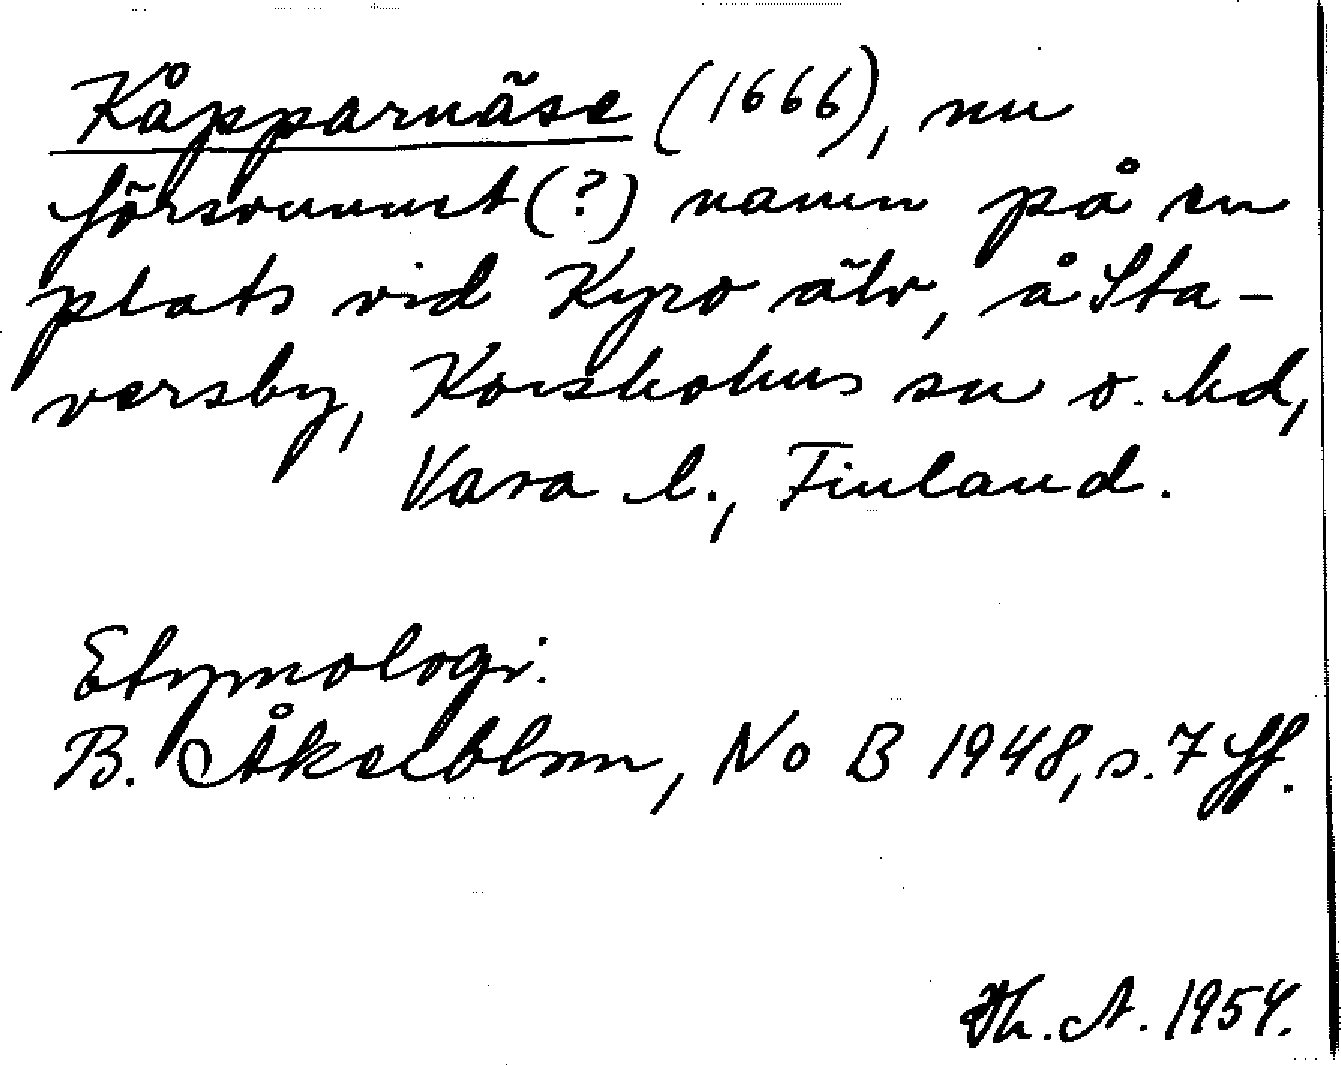 Kåpparnäse (1666), nu
försvunnet (?) namn på en
plats vid Kyro älv, å Sta-
versby, Korsholms sn o. hd,
Vasa l., Finland.
Etymologi:
B. Åkerblom, NoB 1948, s. 7 ff.
Th. A. 1954.